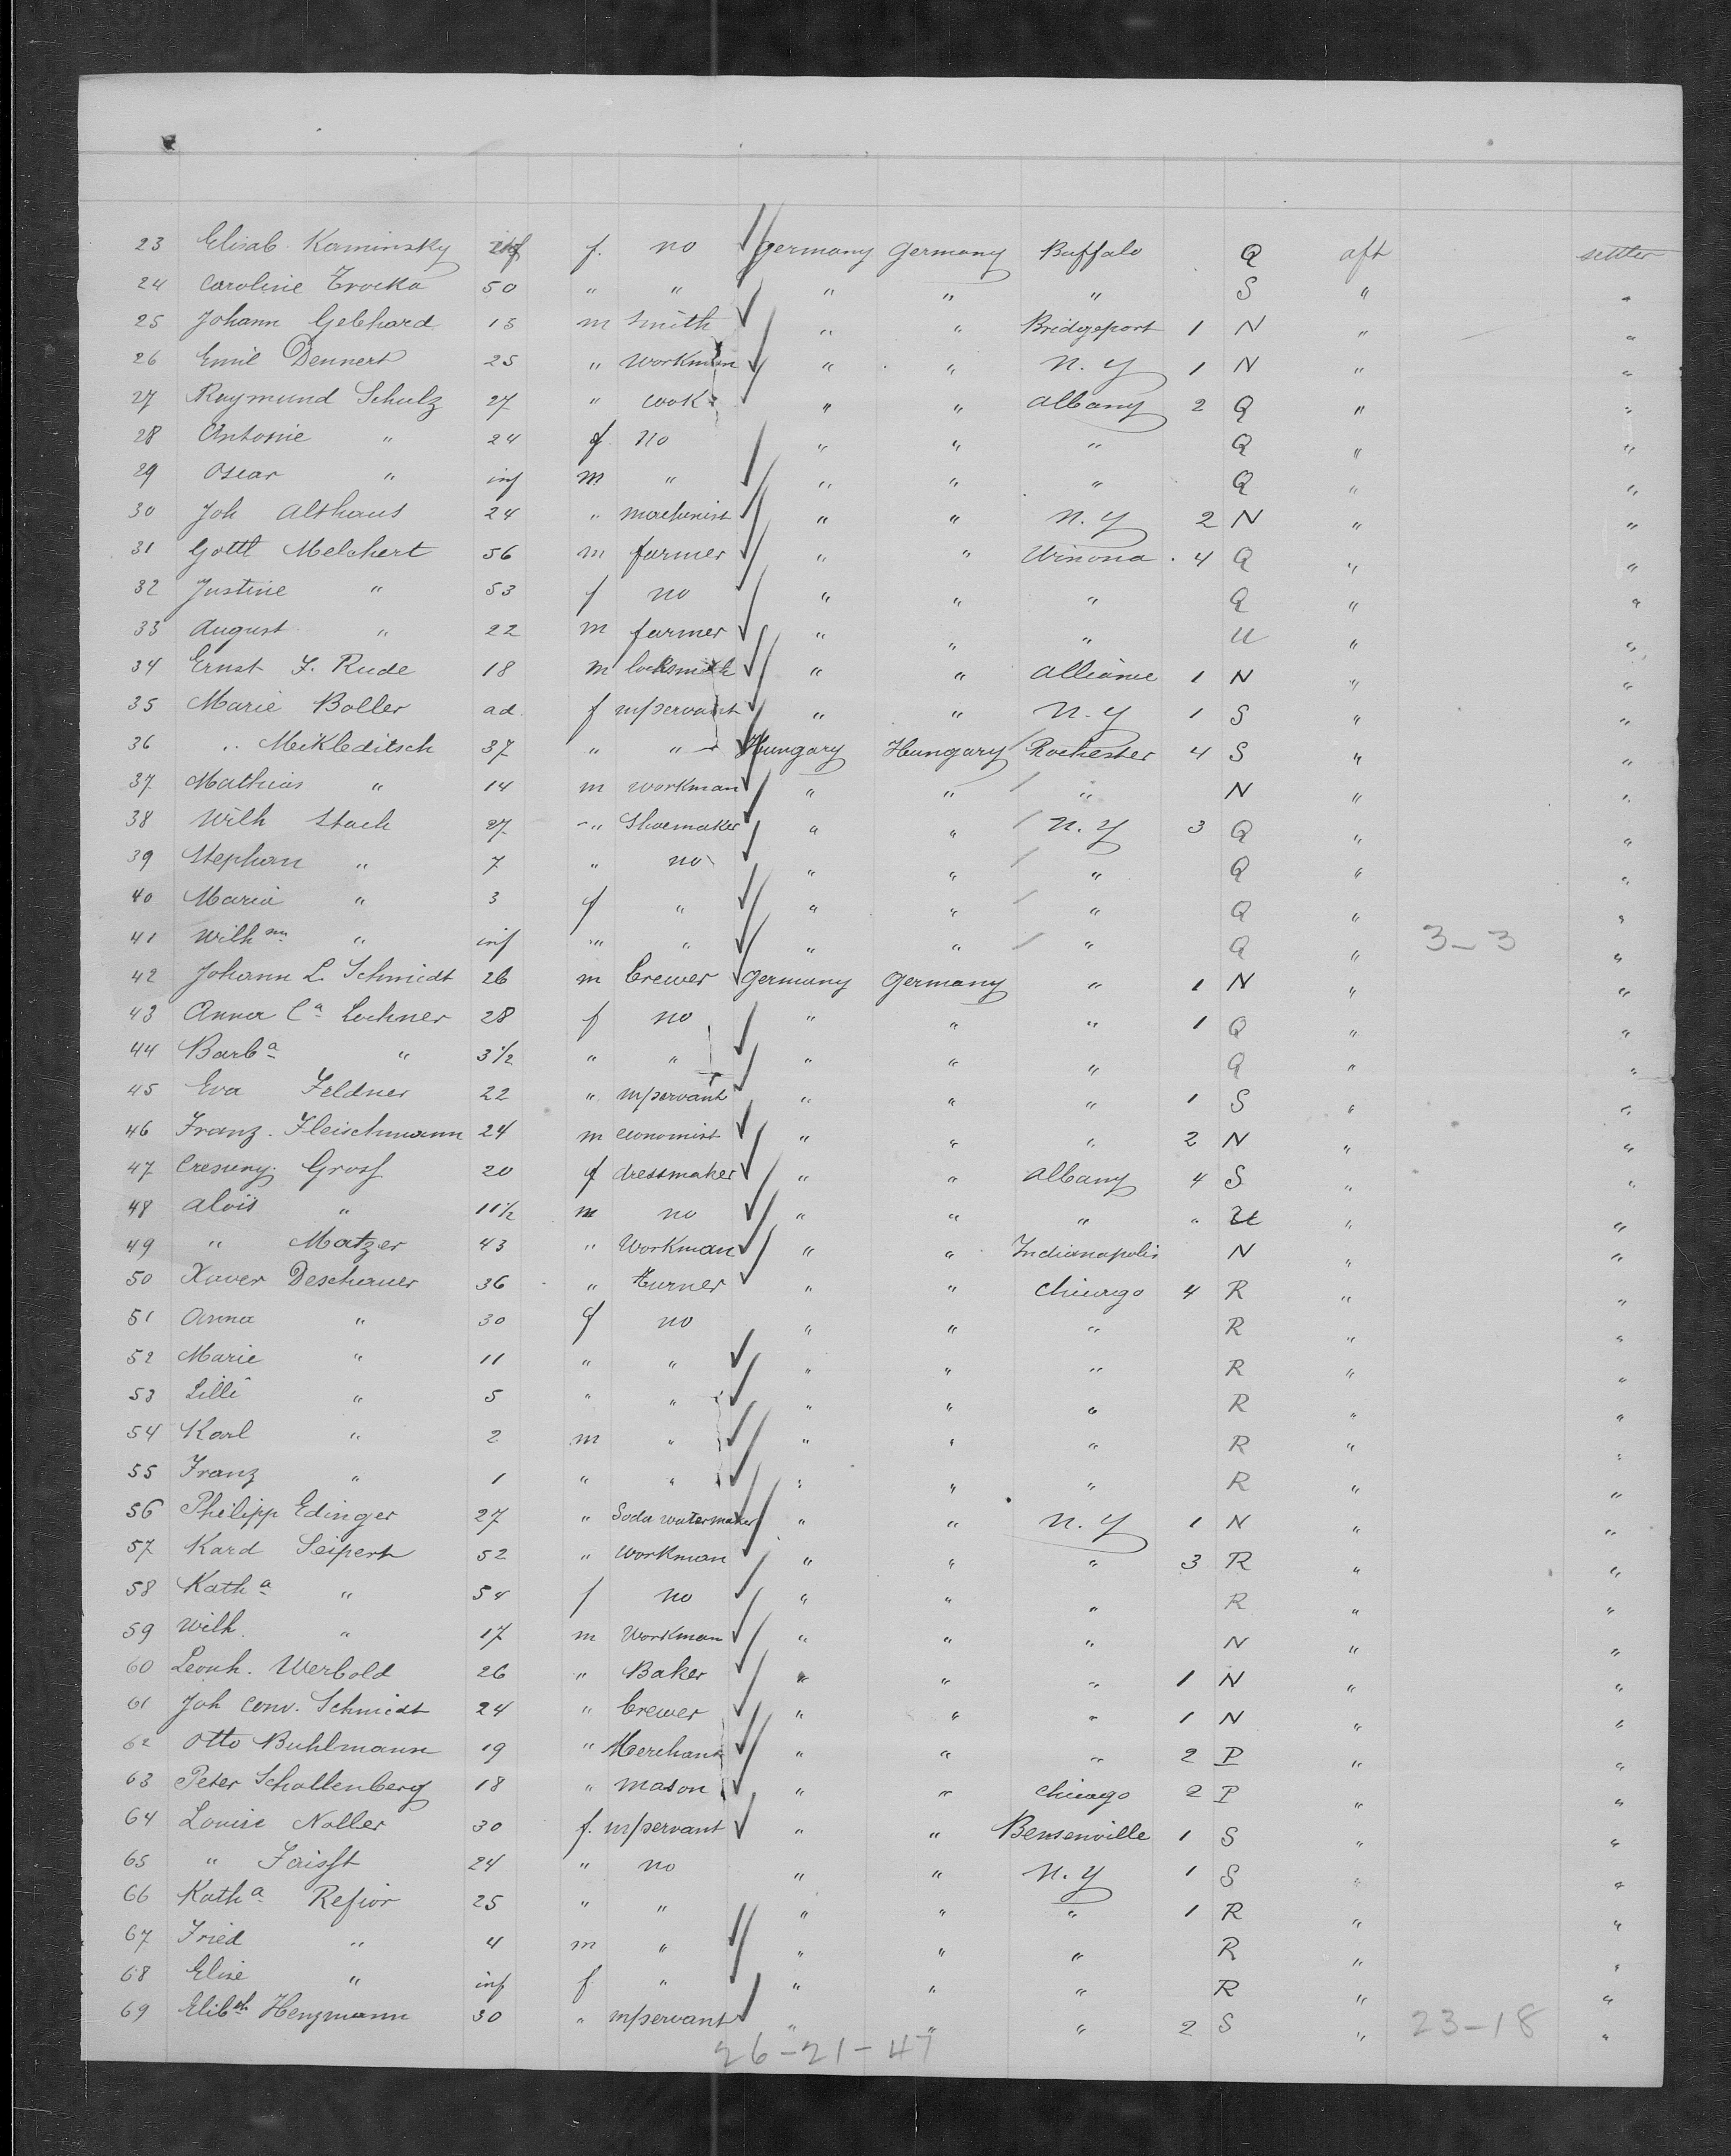 23 Elisab. Kaminsky inf f. no Germany Germany Buffalo Q aft settler
24 Caroline Trocka 50 " " " " " S " "
25 Johann Gebhard 15 m Smith " " Bridgeport 1 N " "
26 Emil Dennert 25 " Workman " " N. Y 1 N " "
27 Raymund Schulz 27 " Cook " " Albany 2 Q " "
28 Antonie " 24 f no " " " Q " "
29 Oscar " inf m " " " " Q " "
30 Joh Althaus 24 " machinist " " N. Y 2 N " "
31 Gottl Melchert 56 m farmer " " Winona 4 Q " "
32 Justine " 53 f no " " " Q " "
33 August " 22 m farmer " " " U " "
34 Ernst F. Rude 18 m locksmith " " Alliance 1 N " "
35 Marie Boller ad. f m/servant " " N. Y 1 S " "
36 " Meikleditsch 37 " " Hungary Hungary Rochester 4 S " "
37 Mathias " 14 m workman " " " N " "
38 Wilh Stach 27 " Shoemaker " " N. Y 3 Q " "
39 Stephan " 7 " no " " " Q " "
40 Maria " 3 f " " " " Q " "
41 Wilhm " inf " " " " " Q " 3-3 "
42 Johann L. Schmidt 26 m brewer Germany Germany " 1 N " "
43 Anna Ca Lochner 28 f no " " " 1 Q " "
44 Barba " 3½ " " " " " Q " "
45 Eva Feldner 22 " m/servant " " " 1 S " "
46 Franz. Fleischmann 24 m economist " " " 2 N " "
47 Grosf 20 f dressmaker " " Albany 4 S " "
48 Alois " 11½ m no " " " " U " "
49 " Matzer 43 " Workman " " Indianapolis N " "
50 Xaver Deschauer 36 " turner " " Chicago 4 R " "
51 Anna " 30 f no " " " R " "
52 Marie " 11 " " " " " R " "
53 Lilli " 5 " " " " " R " "
54 Karl " 2 m " " " " R " "
55 Franz " 1 " " " " " R " "
56 Philipp Edinger 27 " Soda watermaker " " N. Y 1 N " "
57 Kard Seipert 52 " Workman " " " 3 R " "
58 Katha " 54 f no " " " R " "
59 Wilh. " 17 m Workman " " " N " "
60 Leonh. Werbold 26 " Baker " " " 1 N " "
61 Joh Conr. Schmidt 24 " brewer " " " 1 N " "
62 Otto Buhlmann 19 " Merchant " " " 2 P " "
63 Peter Schollenberg 18 " mason " " Chicago 2 P " "
64 Louise Noller 30 f. m/servant " " Bensenville 1 S " "
65 " Faisst 24 " no " " N. Y 1 S " "
66 Katha Refior 25 " " " " " 1 R " "
67 Fried " 4 m " " " " R " "
68 Elise " inf f " " " " R " "
69 Elibeth Henzmann 30 " m/servant " " " 2 S " 23-18 "
26-21-47